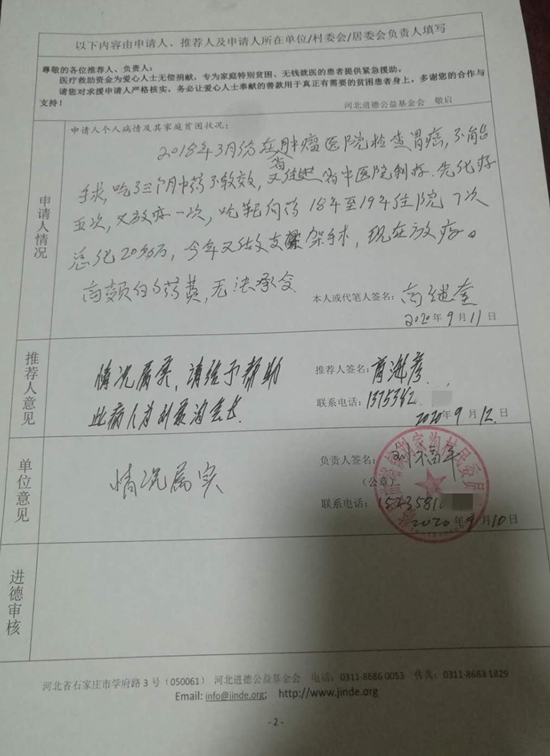 以下内容由申请人、推荐人及申请人所在单位/村委会/居委会负责人填写
尊敬的各位推荐人、负责人：
医疗救助资金为爱心人士无偿捐献，专为家庭特别贫困、无钱就医的患者提供紧急援助。
请您对求援申请人严格核实，务必让爱心人士奉献的善款用于真正有需要的贫困患者身上，多谢您的合作与
支持！
河北进德公益基金会 敬启
申请人情况
申请人个人病情及其家庭贫困状况：
2018年3月份在省肿瘤医院检查胃癌，不能
手术，吃了三个月中药不较效，又住进省中医院制疗。先化疗
五次，又放疗一次，吃靶向药18年至19年住院7次
总化20多万，今年又做支架手术，现在放疗。
高额的药费，无法承受
本人或代笔人签名：高继奎
2020年9月11日
推荐人意见
情况属实，请给予帮助
此病人为刘家沟会长
推荐人签名：
联系电话：13753
2020年9月12日
单位意见
情况属实
负责人签名：刘福年
（公章）
联系电话：15235810
2020年9月10日
进德审核
河北省石家庄市学府路3号（050061） 河北进德公益基金会 电话：0311-8686 0053 传真：0311-8683 1829
Email: info@jinde.org; http://www.jinde.org
- 2 -